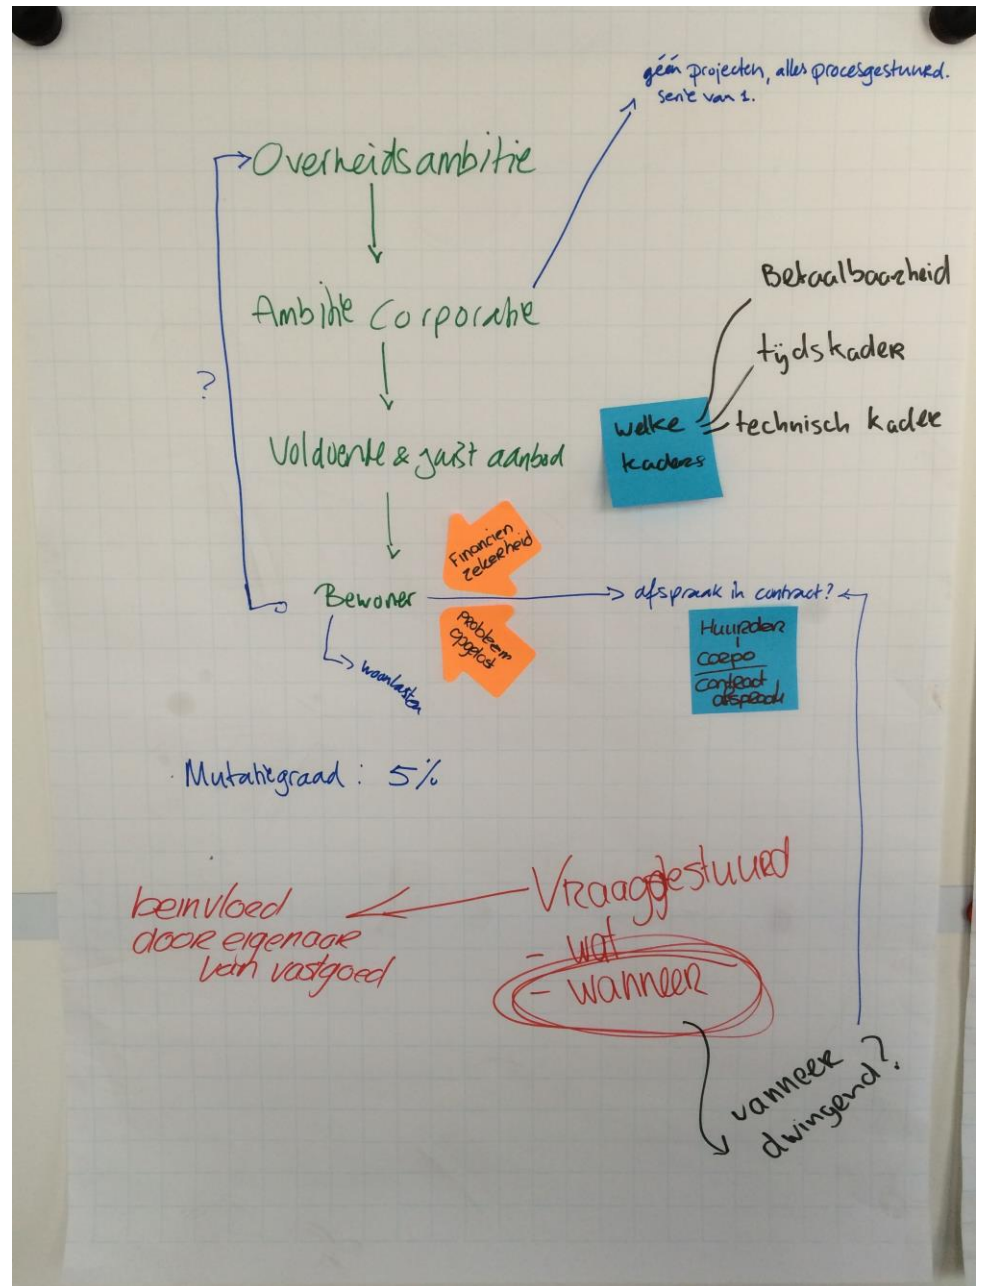 géén projecten, alles procesgestuurd.
serie van 1.
Overheidsambitie
Ambitie Corporatie
?
Betaalbaarheid
tijdskader
technisch kader
welke
kaders
Voldoende & juist aanbod
Financien
zekerheid
Bewoner
afspraak in contract?
probleem
opgelost
Huurder
corpo
contract
afspraak
woonlasten
Mutatiegraad: 5%
Vraaggestuurd
- wat
- wanneer
beinvloed
door eigenaar
van vastgoed
vanneer
dwingend?